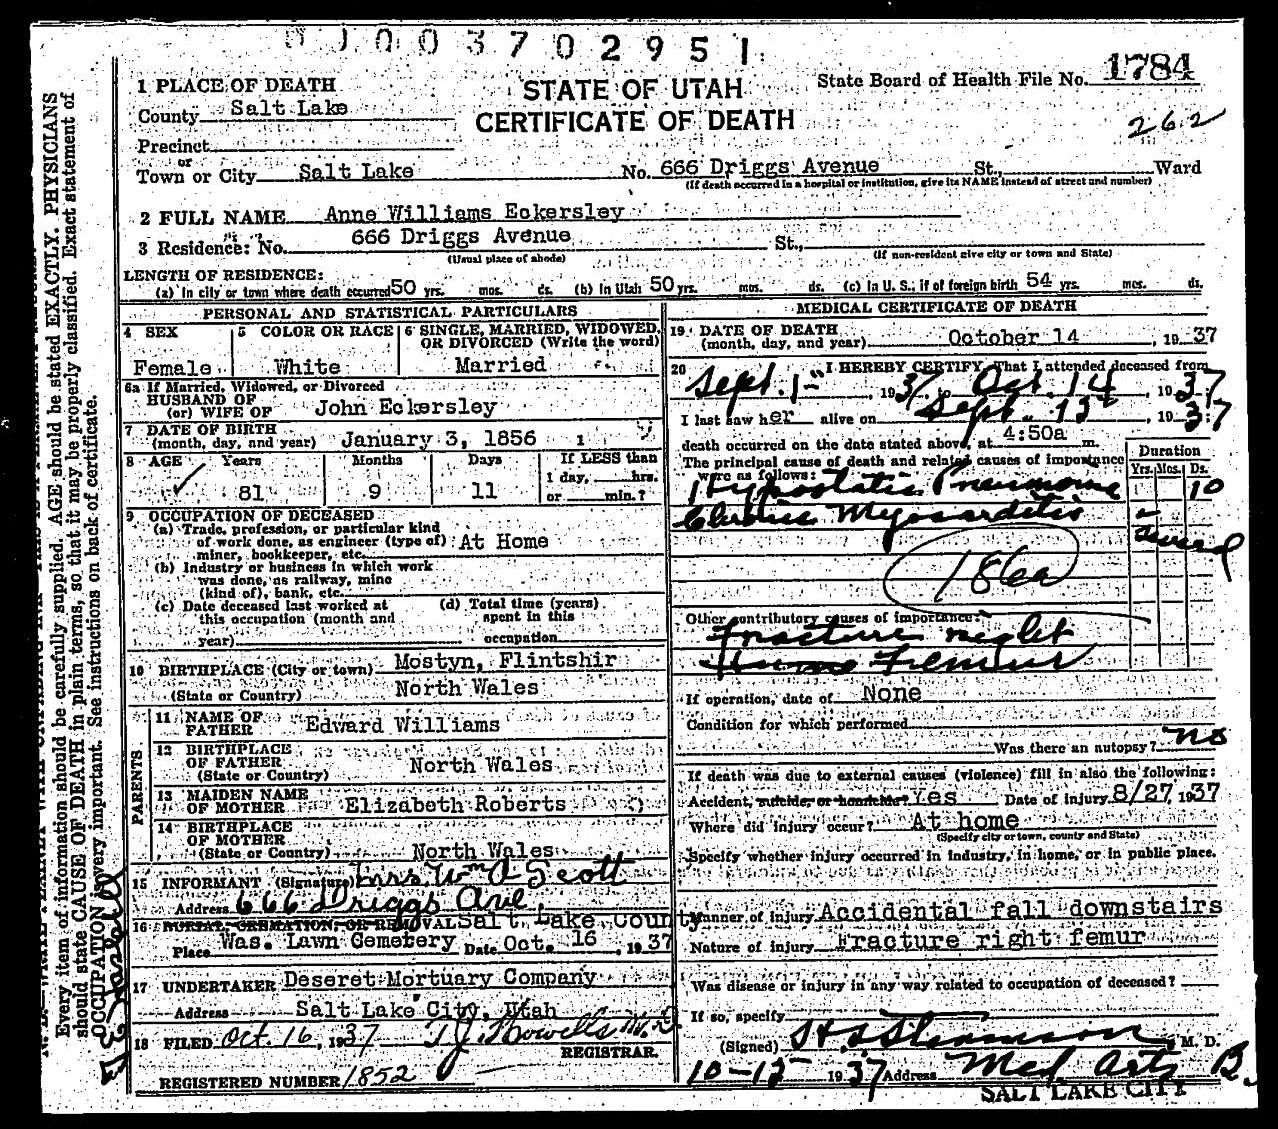 370 2951
1 PLACE OF DEATH
County Salt Lake
Precinct
or
Town or City Salt Lake
STATE OF UTAH
CERTIFICATE OF DEATH
State Board of Health File No. 1784
262
No. 666 Driggs Avenue St., Ward
(If death occurred in a hospital or institution, give its NAME instead of street and number)
2 FULL NAME Anne Williams Eckersley
3 Residence: No. 666 Driggs Avenue St.,
(Usual place of abode) (If non-resident give city or town and State)
LENGTH OF RESIDENCE:
(a) In city or town where death occurred 50 yrs. mos. ds. (b) In Utah 50 yrs. mos. ds. (c) In U. S., if of foreign birth 54 yrs. mos. ds.
PERSONAL AND STATISTICAL PARTICULARS
4 SEX Female
5 COLOR OR RACE White
6 SINGLE, MARRIED, WIDOWED, OR DIVORCED (Write the word) Married
6a If Married, Widowed, or Divorced
HUSBAND OF
(or) WIFE OF John Eckersley
7 DATE OF BIRTH
(month, day, and year) January 3, 1856
8 AGE Years Months Days If LESS than
81 9 11 1 day, hrs.
or min.?
9 OCCUPATION OF DECEASED
(a) Trade, profession, or particular kind
of work done, as engineer (type of) At Home
miner, bookkeeper, etc.
(b) Industry or business in which work
was done, as railway, mine
(kind of), bank, etc.
(c) Date deceased last worked at (d) Total time (years)
this occupation (month and spent in this
year) occupation
10 BIRTHPLACE (City or town) Mostyn, Flintshir
(State or Country) North Wales
PARENTS
11 NAME OF
FATHER Edward Williams
12 BIRTHPLACE
OF FATHER North Wales
(State or Country)
13 MAIDEN NAME
OF MOTHER Elizabeth Roberts
14 BIRTHPLACE
OF MOTHER
(State or Country) North Wales
15 INFORMANT (Signature) Mrs. Wm A Scott
Address 666 Driggs Ave.
16 BURIAL, CREMATION, OR REMOVAL Salt Lake County
Place Was. Lawn Cemetery Date Oct. 16, 1937
17 UNDERTAKER Deseret Mortuary Company
Address Salt Lake City, Utah
18 FILED Oct. 16, 1937 T J Howells M. D.
REGISTRAR.
REGISTERED NUMBER 1852
MEDICAL CERTIFICATE OF DEATH
19 DATE OF DEATH
(month, day, and year) October 14, 1937
20 I HEREBY CERTIFY, That I attended deceased from
Sept. 1, 1937 to Oct. 14, 1937
I last saw her alive on Sept. 13, 1937
death occurred on the date stated above, at 4:50a m.
The principal cause of death and related causes of importance
were as follows:
Duration
Yrs. Mos. Ds.
Hypostatic Pneumonia 10
Chronic Myocarditis
several
186a
Other contributory causes of importance:
Fracture right
Femur
If operation, date of None
Condition for which performed
Was there an autopsy? no
If death was due to external causes (violence) fill in also the following:
Accident, suicide, or homicide? Yes Date of injury 8/27, 1937
Where did injury occur? At home
(Specify city or town, county and State)
Specify whether injury occurred in industry, in home, or in public place.
Manner of injury Accidental fall downstairs
Nature of injury Fracture right femur
Was disease or injury in any way related to occupation of deceased?
If so, specify
(Signed) M. D.
1937 Address Med. Arts B.
SALT LAKE CITY
Every item of information should be carefully supplied. AGE should be stated EXACTLY. PHYSICIANS
should state CAUSE OF DEATH in plain terms, so that it may be properly classified. Exact statement of
OCCUPATION is very important. See instructions on back of certificate.